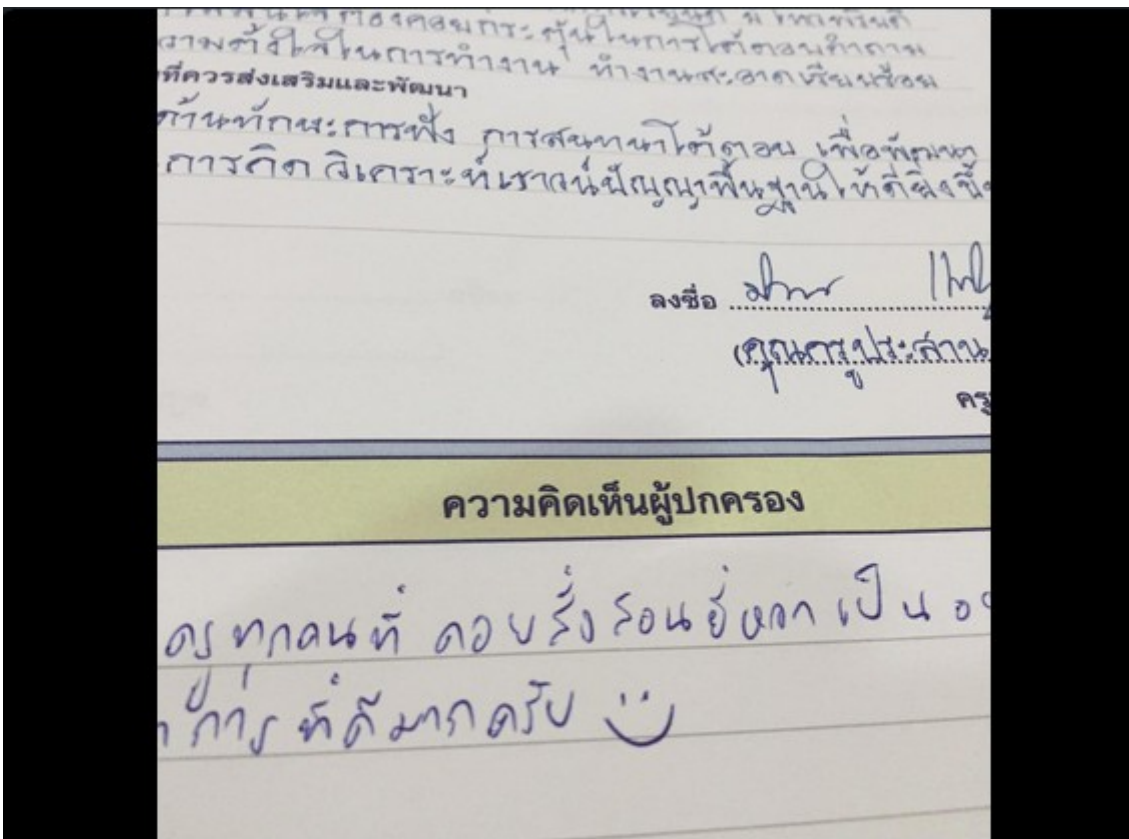 ต้องคอยกระตุ้นในการโต้ตอบคำถาม
ความตั้งใจในการทำงาน ทำงานสะอาดเรียบร้อย
ที่ควรส่งเสริมและพัฒนา
ด้านทักษะการฟัง การสนทนาโต้ตอบ เพื่อพัฒนา
การคิด วิเคราะห์เชาวน์ปัญญาพื้นฐานให้ดียิ่งขึ้น
ลงชื่อ
(คุณครูประสาน
ครู
ความคิดเห็นผู้ปกครอง
ครูทุกคนที่ คอยสั่งสอนยี่หวาเป็น
การ ที่ดีมากครับ